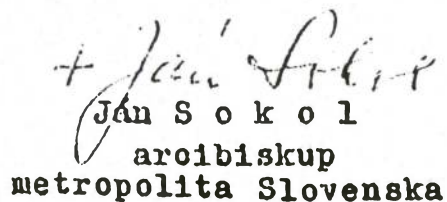 + Ján Sokol
Ján S o k o l
arcibiskup
metropolita Slovenska